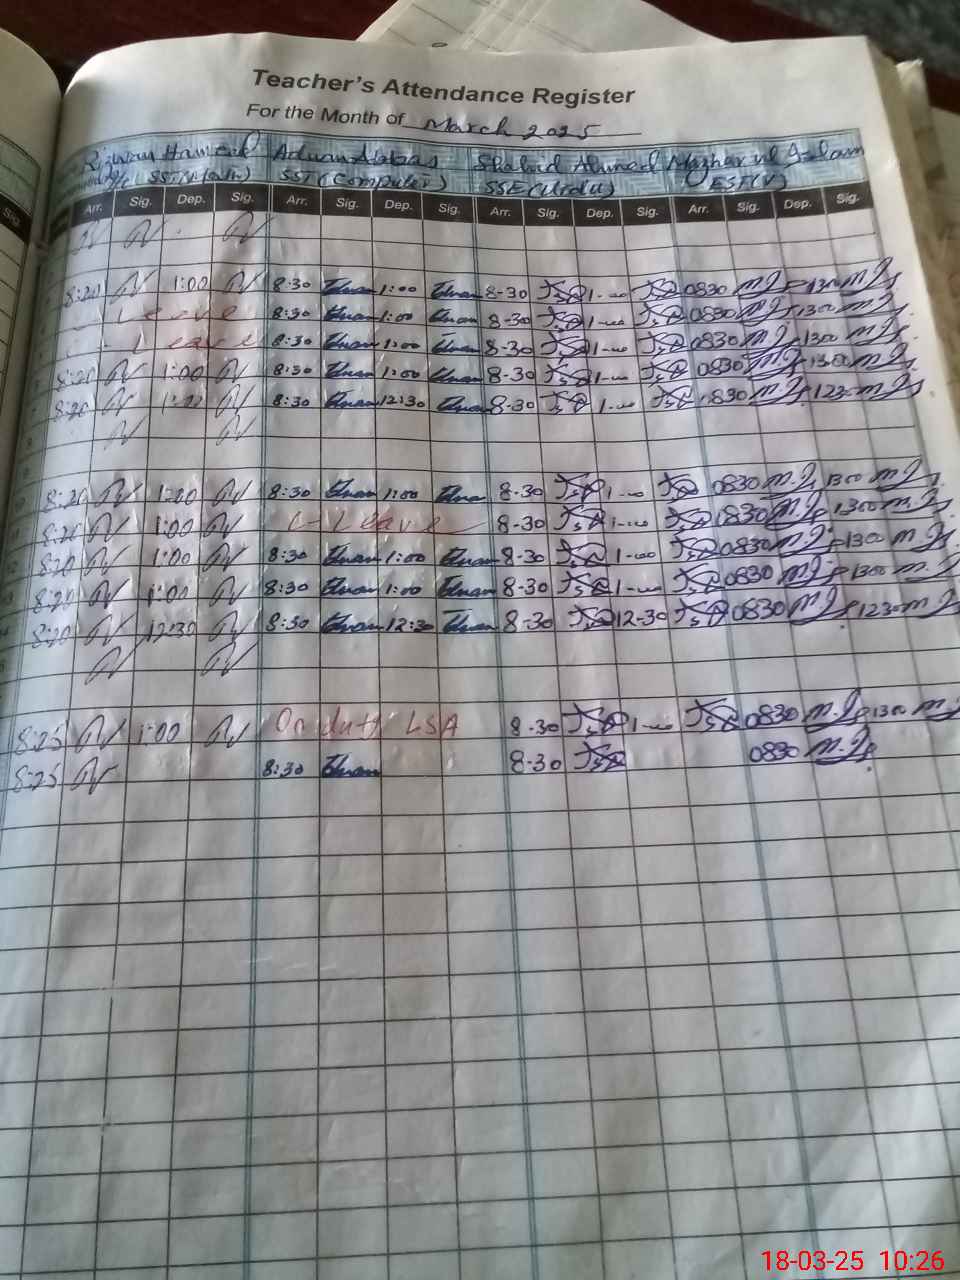 Teacher's Attendance Register
For the Month of March 2025
Rizwan Hameed Adnan Abbas Shahid Ahmed Mazhar ul Islam
SST (Math) SST (Computer) SSE (Urdu) EST (V)
Sig.
Arr. Sig. Dep. Sig. Arr. Sig. Dep. Sig. Arr. Sig. Dep. Sig. Arr. Sig. Dep. Sig.
8:20 1:00 8:30 1:00 8-30 1-00 0830 1300
Leave 8:30 1:00 8-30 1-00 0830 1300
Leave 8:30 1:00 8-30 1-00 0830 1300
8:20 1:00 8:30 1:00 8-30 1-00 0830 1300
8:20 8:30 12:30 8-30 1-00 0830 1230
8:20 1:00 8:30 1:00 8-30 1-00 0830 1300
8:20 1:00 Leave 8-30 1-00 0830 1300
8:20 1:00 8:30 1:00 8-30 1-00 0830 1300
8:20 1:00 8:30 1:00 8-30 1-00 0830 1300
8:20 12:30 8:30 12:30 8-30 12-30 0830 1230
8:25 1:00 On duty LSA 8-30 1-00 0830 1300
8:25 8:30 8-30 0830
18-03-25 10:26